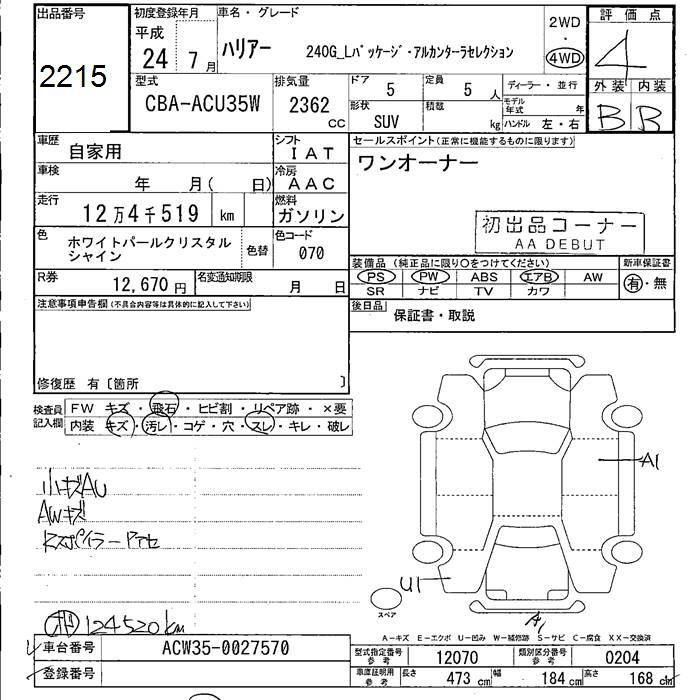 出品番号
2215
初度登録年月
平成
24 7月
車名・グレード
ハリアー 240G_Lパッケージ・アルカンターラセレクション
2WD
・
4WD
評価点
4
型式
CBA-ACU35W
排気量
2362
CC
ドア 5
定員 5 人
形状 SUV
積載 kg
ディーラー・並行
モデル年式 年
ハンドル 左・右
外装 内装
B B
車歴
自家用
シフト
IAT
車検
年 月( 日)
冷房
AAC
走行
12万4千519 km
燃料
ガソリン
色
ホワイトパールクリスタル
シャイン
色替
色コード
070
R券
12,670 円
名変通知期限
月 日
セールスポイント(正常に機能するものに限ります)
ワンオーナー
初出品コーナー
AA DEBUT
装備品(純正品に限り○をつけてください)
PS PW ABS エアB AW
SR ナビ TV カワ
新車保証書
有・無
後日品
保証書・取説
注意事項申告欄(不具合内容等は具体的に記入して下さい)
修復歴 有〔箇所 〕
検査員
記入欄
FW キズ・飛石・ヒビ割・リペア跡・×要
内装 キズ・汚レ・コゲ・穴・スレ・キレ・破レ
小キズAU
AWキズ
124520km
A1
U1
A1
スペア
A-キズ E-エクボ U-凹み W-補修跡 S-サビ C-腐食 XX-交換済
車台番号
ACW35-0027570
登録番号
型式指定番号
参考
12070
類別区分番号
参考
0204
車庫証明用
参考
長さ 473 cm
幅 184 cm
高さ 168 cm